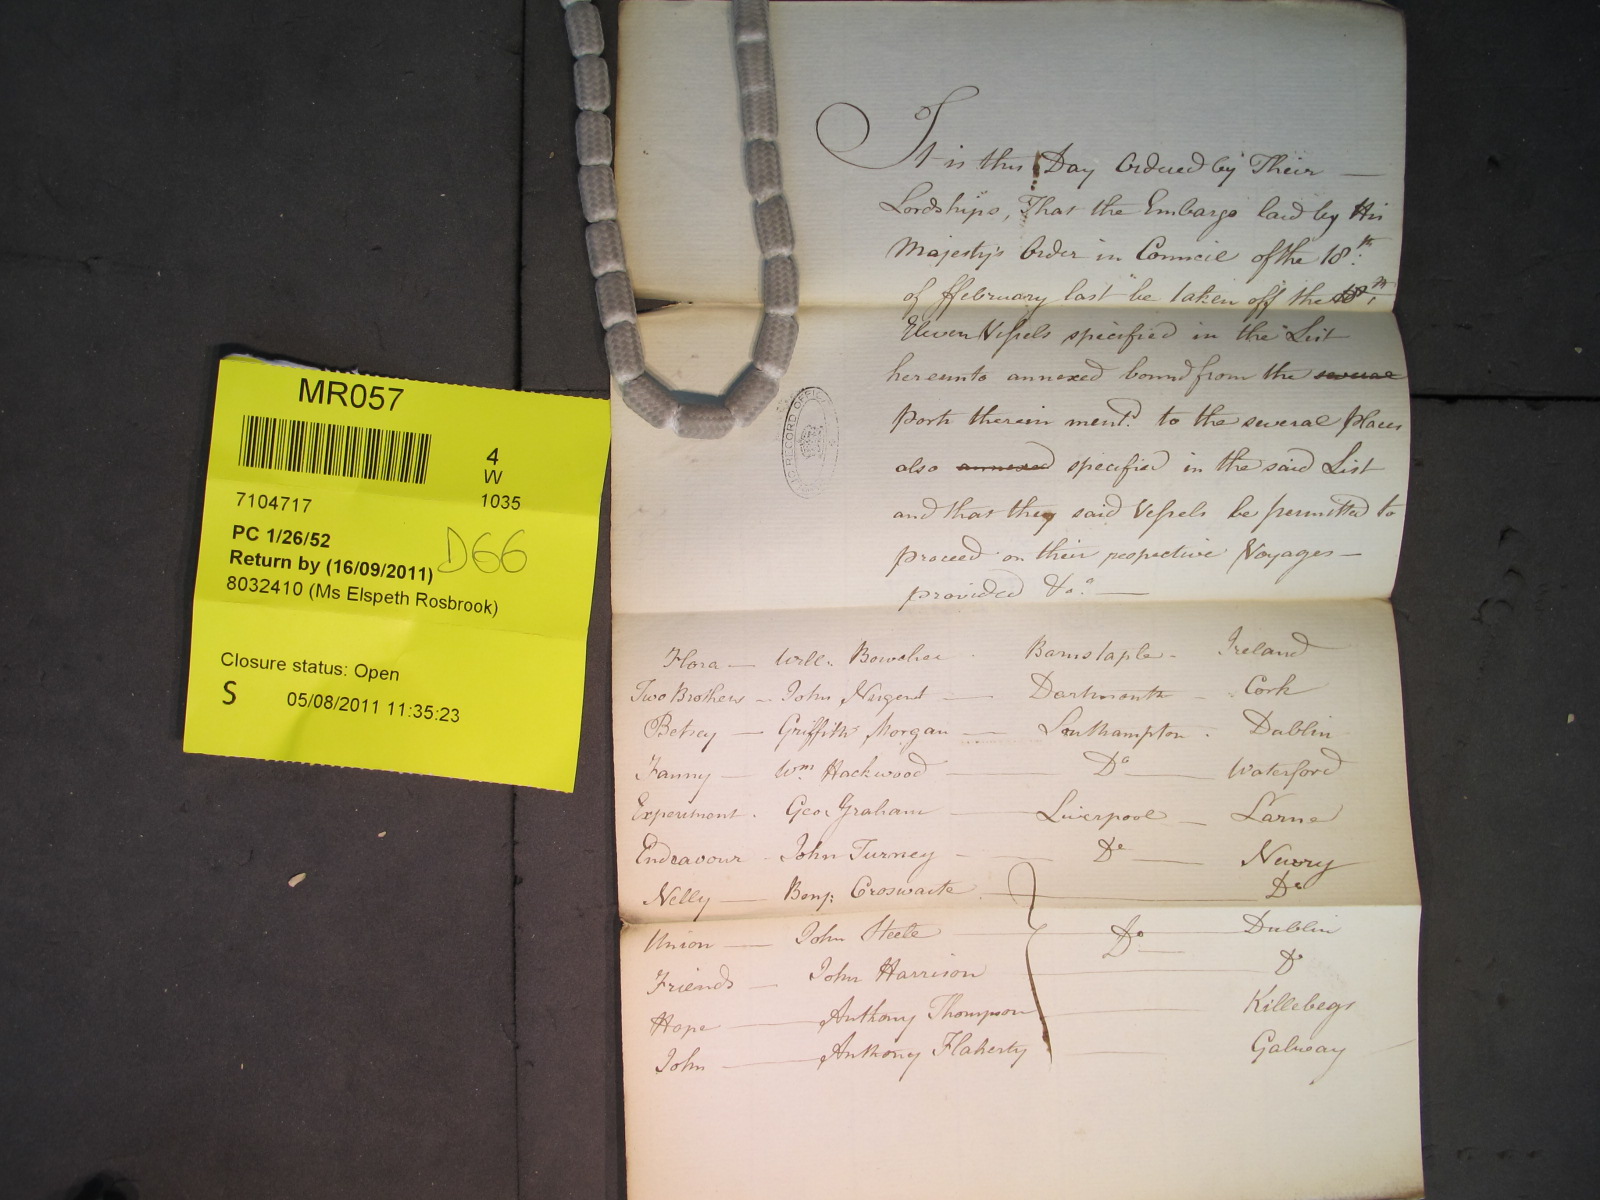 It is this Day Ordered by Their —
Lordships, That the Embargo laid by His
Majesty's Order in Council of the 18th
of ffebruary last be taken off the 18th
Eleven Vessels specified in the List
hereunto annexed bound from the several
ports therein ment.d to the several places
also annexed specified in the said List
and that they said Vessels be permitted to
proceed on their respective Voyages —
provided &c.a —
Flora — Will: Bowcher - Barnstaple - Ireland
Two Brothers — John Nugent — Dartmouth — Cork
Betsey — Griffith Morgan — Southampton - Dublin
Fanny — Wm Hackwood — Do — Waterford
Experiment - Geo: Graham — Liverpool — Larne
Endeavour - John Turney — Do — Newry
Nelly — Benj: Croswaite — Do
Union — John Steele — Do — Dublin
Friends — John Harrison — Do
Hope — Anthony Thompson — Killebegs
John — Anthony Flaherty — Galway
RECORD OFFICE
MR057
4
W
7104717 1035
PC 1/26/52
D66
Return by (16/09/2011)
8032410 (Ms Elspeth Rosbrook)
Closure status: Open
S 05/08/2011 11:35:23